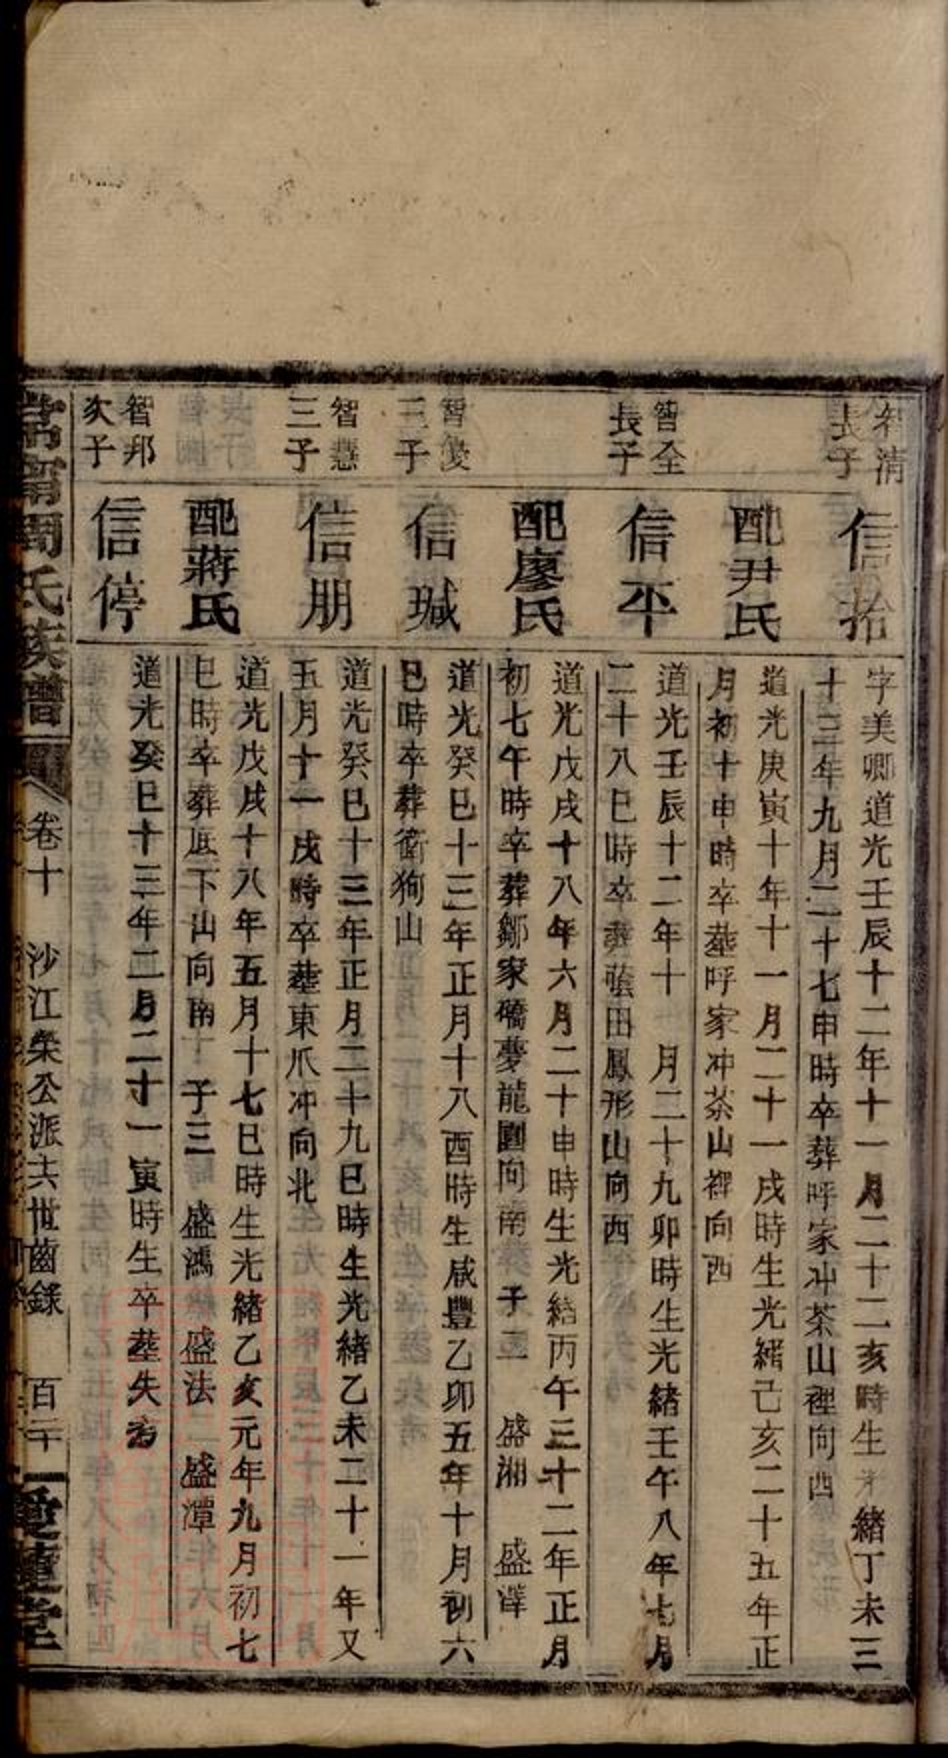 智清
長子
信拾
字美卿道光壬辰十二年十一月二十二亥時生光緒丁未三
十三年九月二十七申時卒葬呼家冲茶山裡向西
配尹氏
道光庚寅十年十一月二十一戌時生光緒己亥二十五年正
月初十申時卒塟呼家冲茶山裡向西
智全
長子
信平
道光壬辰十二年十一月二十九卯時生光緒壬午八年七月
二十八巳時卒塟蔭田鳳形山向西
配廖氏
道光戊戌十八年六月二十申時生光緒丙午三十二年正月
初七午時卒葬鄒家礄夢龍園向南 子二 盛湘 盛澤
智愛
三子
信瑊
道光癸巳十三年正月十八酉時生咸豐乙卯五年十月初六
巳時卒葬衝狗山
智慧
三子
信朋
道光癸巳十三年正月二十九巳時生光緒乙未二十一年又
五月十一戌時卒塟東爪冲向北
配蔣氏
道光戊戌十八年五月十七巳時生光緒乙亥元年九月初七
巳時卒葬底下山向南 子三 盛鴻 盛法 盛潭
智邦
次子
信停
道光癸巳十三年二月二十一寅時生卒塟失考
常甯周氏族譜 卷十 沙江榮公派六世齒錄 百二十 愛蓮堂